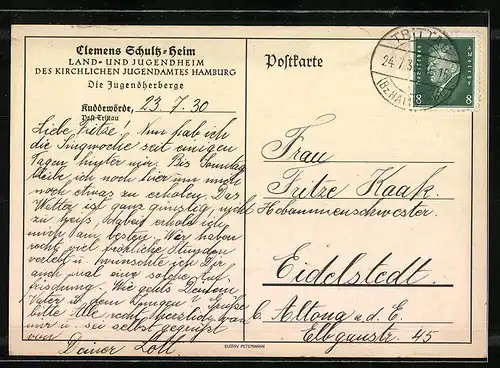 Clemens Schultz-Heim
LAND- UND JUGENDHEIM
DES KIRCHLICHEN JUGENDAMTES HAMBURG
Die Jugendherberge
Kuddewörde, 23. 7. 30
Post Trittau
Liebe Fritze! Nun hab ich
die Singwoche seit einigen
Tagen hinter mir. Bis Sonntag
bleibe ich noch hier um mich
noch etwas zu erholen. Das
Wetter ist ganz günstig, nicht
zu heiß, dabei erhole ich
mich am besten. Wir haben
recht viel fröhliche Stunden
verlebt u. wünschte ich Dir
auch mal eine solche Auf
frischung. Wie gehts Deinem
Vater u. dem Jungen? Grüße
bitte Alle recht herzlich von
mir u. sei selbst gegrüßt
von
Deiner Lott.
Postkarte
TRITTAU
24. 7. 30
(BZ. HAMBURG)
DEUTSCHES REICH
8 8
Frau
Fritze Kaak.
Hebammenschwester.
Eidelstedt.
b. Altona a. d. E.
Elbgaustr. 45
GUSTAV PETERMANN